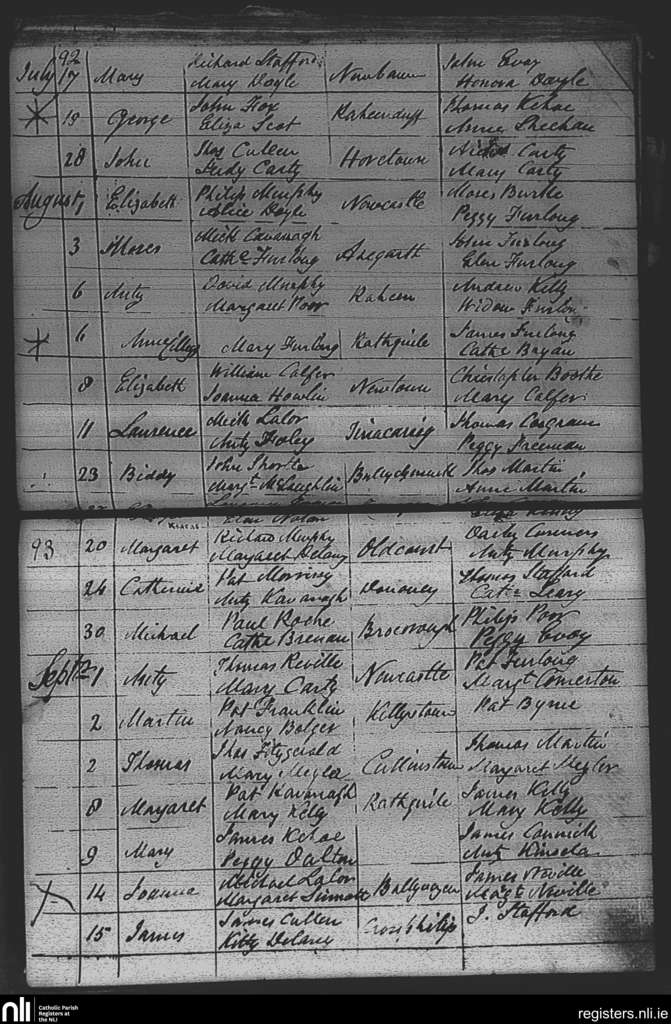 92
Richard Stafford John Evoy
July 17 Mary Newbawn
Mary Doyle Honora Doyle
John Fox Thomas Kehoe
19 George Raheenduff
Eliza Scot Anne Sheehan
Thos Cullen Carty
28 John Horetown
Judy Carty Mary Carty
Philip Murphy Moses Burke
August 1 Elizabeth Newcastle
Alice Doyle Peggy Furlong
Mich Cavanagh John Furlong
3 Moses Asegarth
Cathe Furlong Elen Furlong
David Murphy Andrew Kelly
6 Anty Raheen
Margaret Poor Widow Furlon
James Furlong
6 Anne Mary Furlong Rathguile
Cathe Bryan
William Calfer Christopher Boothe
8 Elizabeth Newtown
Joanna Howlin Mary Calfer
Mich Lalor Thomas Cosgrave
11 Laurence Tinacarrig
Anty Foley Peggy Freeman
John Shortle Thos Martin
23 Biddy
Margt McLaughlin Anne Martin
Elen Nolan Kenny
Richard Murphy Darby Connors
93 20 Margaret Oldcourt
Margaret Delany Anty Murphy
Pat Morrisy Thomas Stafford
24 Catherine Donaney
Anty Kavanagh Cate Leary
Paul Roche Philip Poor
30 Michael Brocorough
Cathe Brenan Peggy Evoy
Thomas Reville Pat Furlong
Septr 1 Anty Newcastle
Mary Carty Margt Comerton
Pat Franklin Pat Byrne
2 Martin Kellystown
Nancy Bolger
Thos Fitzgerald Thomas Martin
2 Thomas Cullinstown
Mary Megler Margaret Megler
Pat Kavanagh James Kelly
8 Margaret Rathguile
Mary Kelly Mary Kelly
James Kehoe James Cormick
9 Mary
Peggy Dalton Anty Kinsela
Michael Lalor James Neville
14 Joanna
Margaret Sinnott Margt Neville
James Cullen J. Stafford
15 James Crossphilip
Kitty Delaney
nli Catholic Parish
Registers at
the NLI
registers.nli.ie